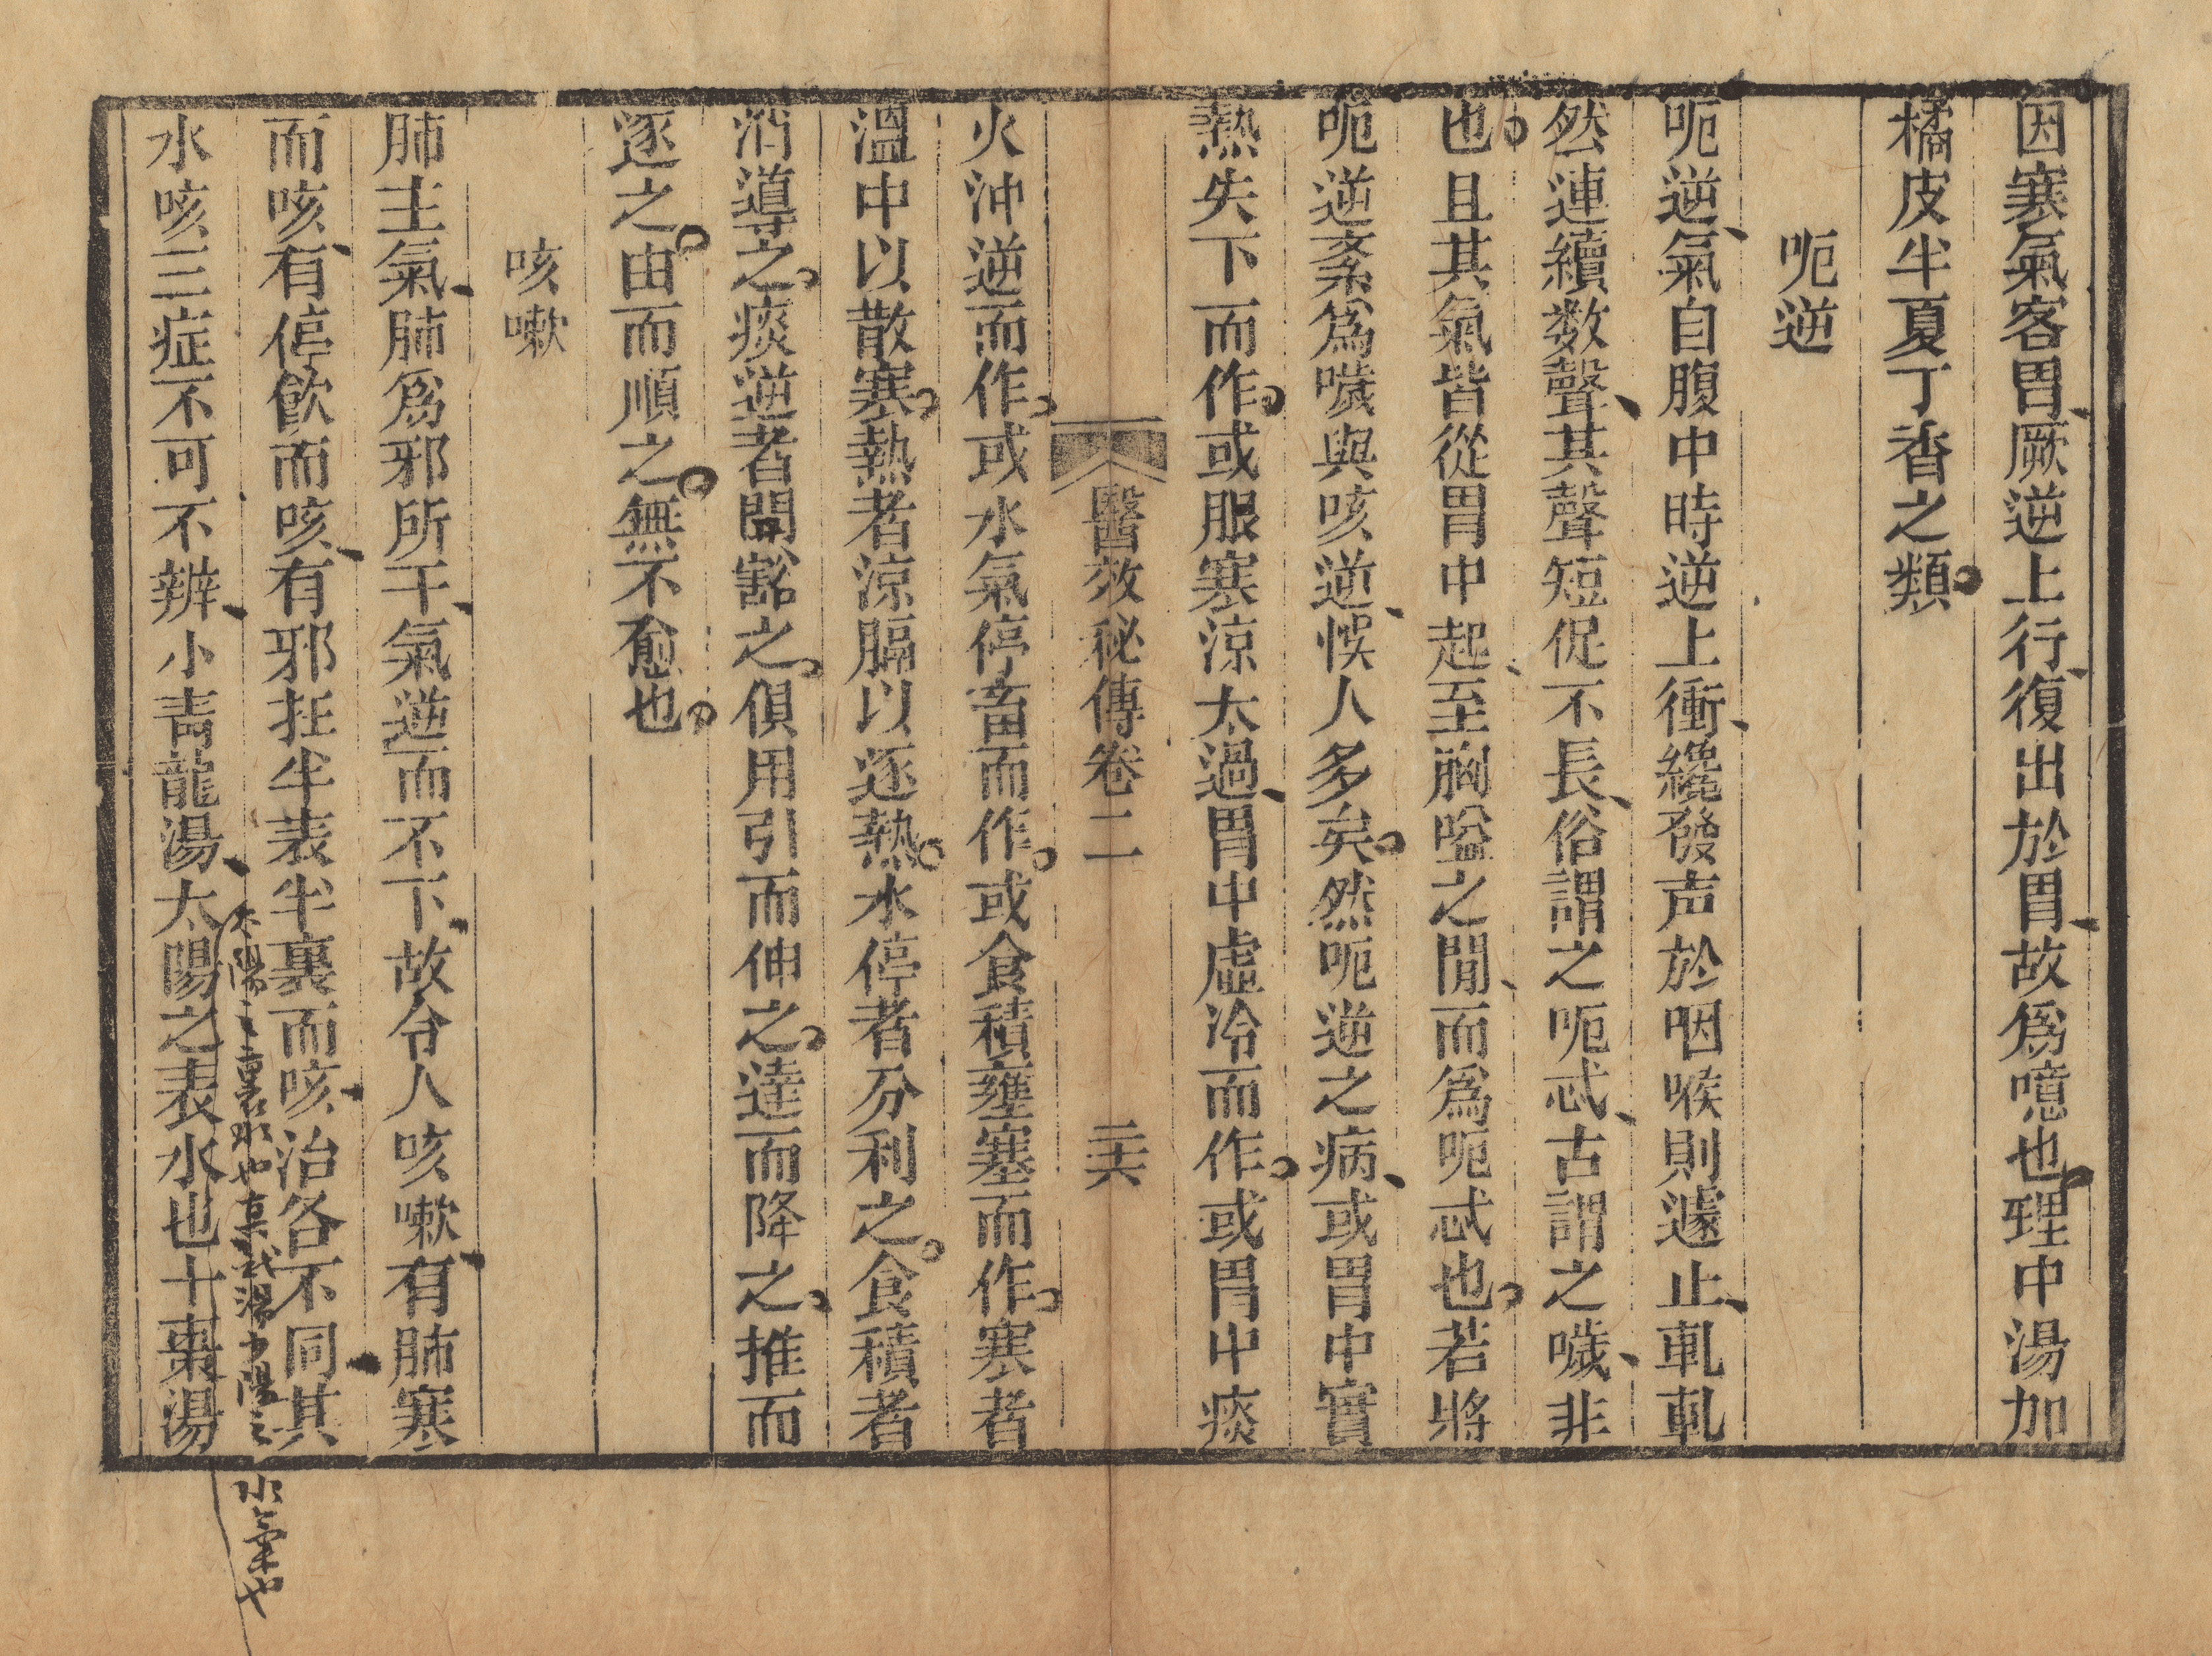 因寒氣客胃厥逆上行復出於胃故爲噫也理中湯加
橘皮半夏丁香之類
呃逆
呃逆氣自腹中時逆上衝纔發声於咽喉則遽止軋軋
然連續数聲其聲短促不長俗謂之呃忒古謂之噦非
也且其氣皆從胃中起至胸嗌之間而爲呃忒也若將
呃逆紊爲噦與咳逆悞人多矣然呃逆之病或胃中實
熱失下而作或服寒涼太過胃中虛冷而作或胃中痰
醫效秘傳卷二
二十六
火沖逆而作或水氣停畜而作或食積壅塞而作寒者
溫中以散寒熱者涼膈以逐熱水停者分利之食積者
消導之痰逆者開豁之俱用引而伸之達而降之推而
逐之由而順之無不愈也
咳嗽
肺主氣肺爲邪所干氣逆而不下故令人咳嗽有肺寒
而咳有停飲而咳有邪在半表半裏而咳治各不同其
太陽之裏水也真武湯少陽之水氣也
水咳三症不可不辨小青龍湯太陽之表水也十棗湯